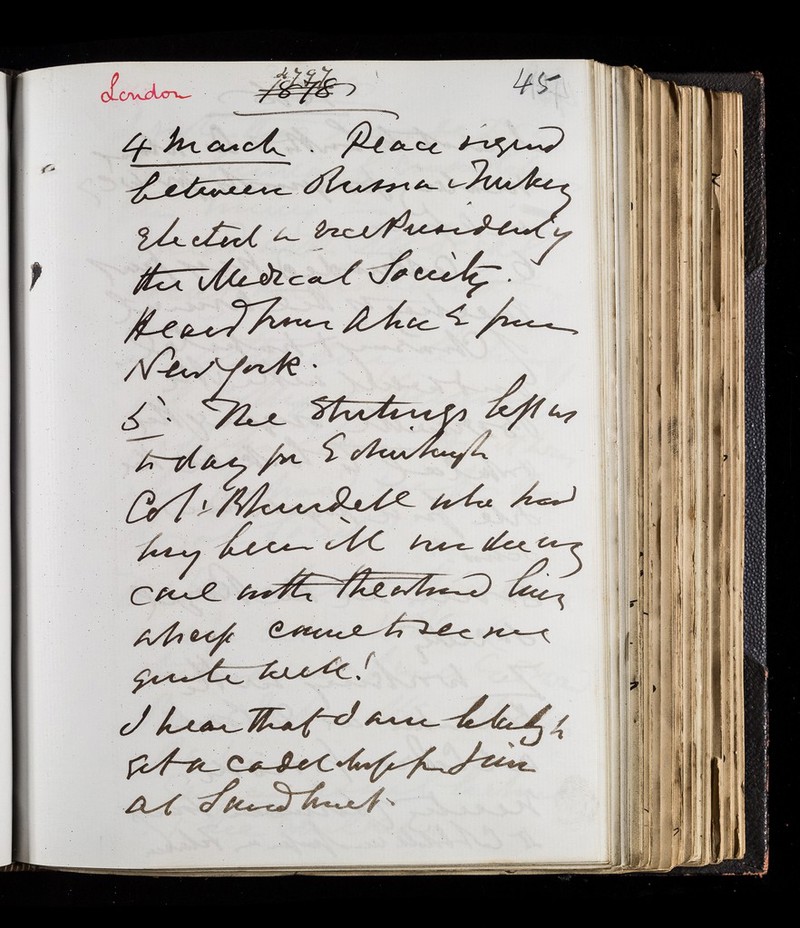 London
1878
45
4 March. Peace signed
between Russia & Turkey
Elected a Vice President of
the Medical Society.
Heard from Alice E from
New York.
5. The Stirlings left us
to day for Edinburgh
Col: Blundell who had
been ill under my
care with
came to see me
quite well!
I hear that I am likely to
get a cadetship for
at Sandhurst.